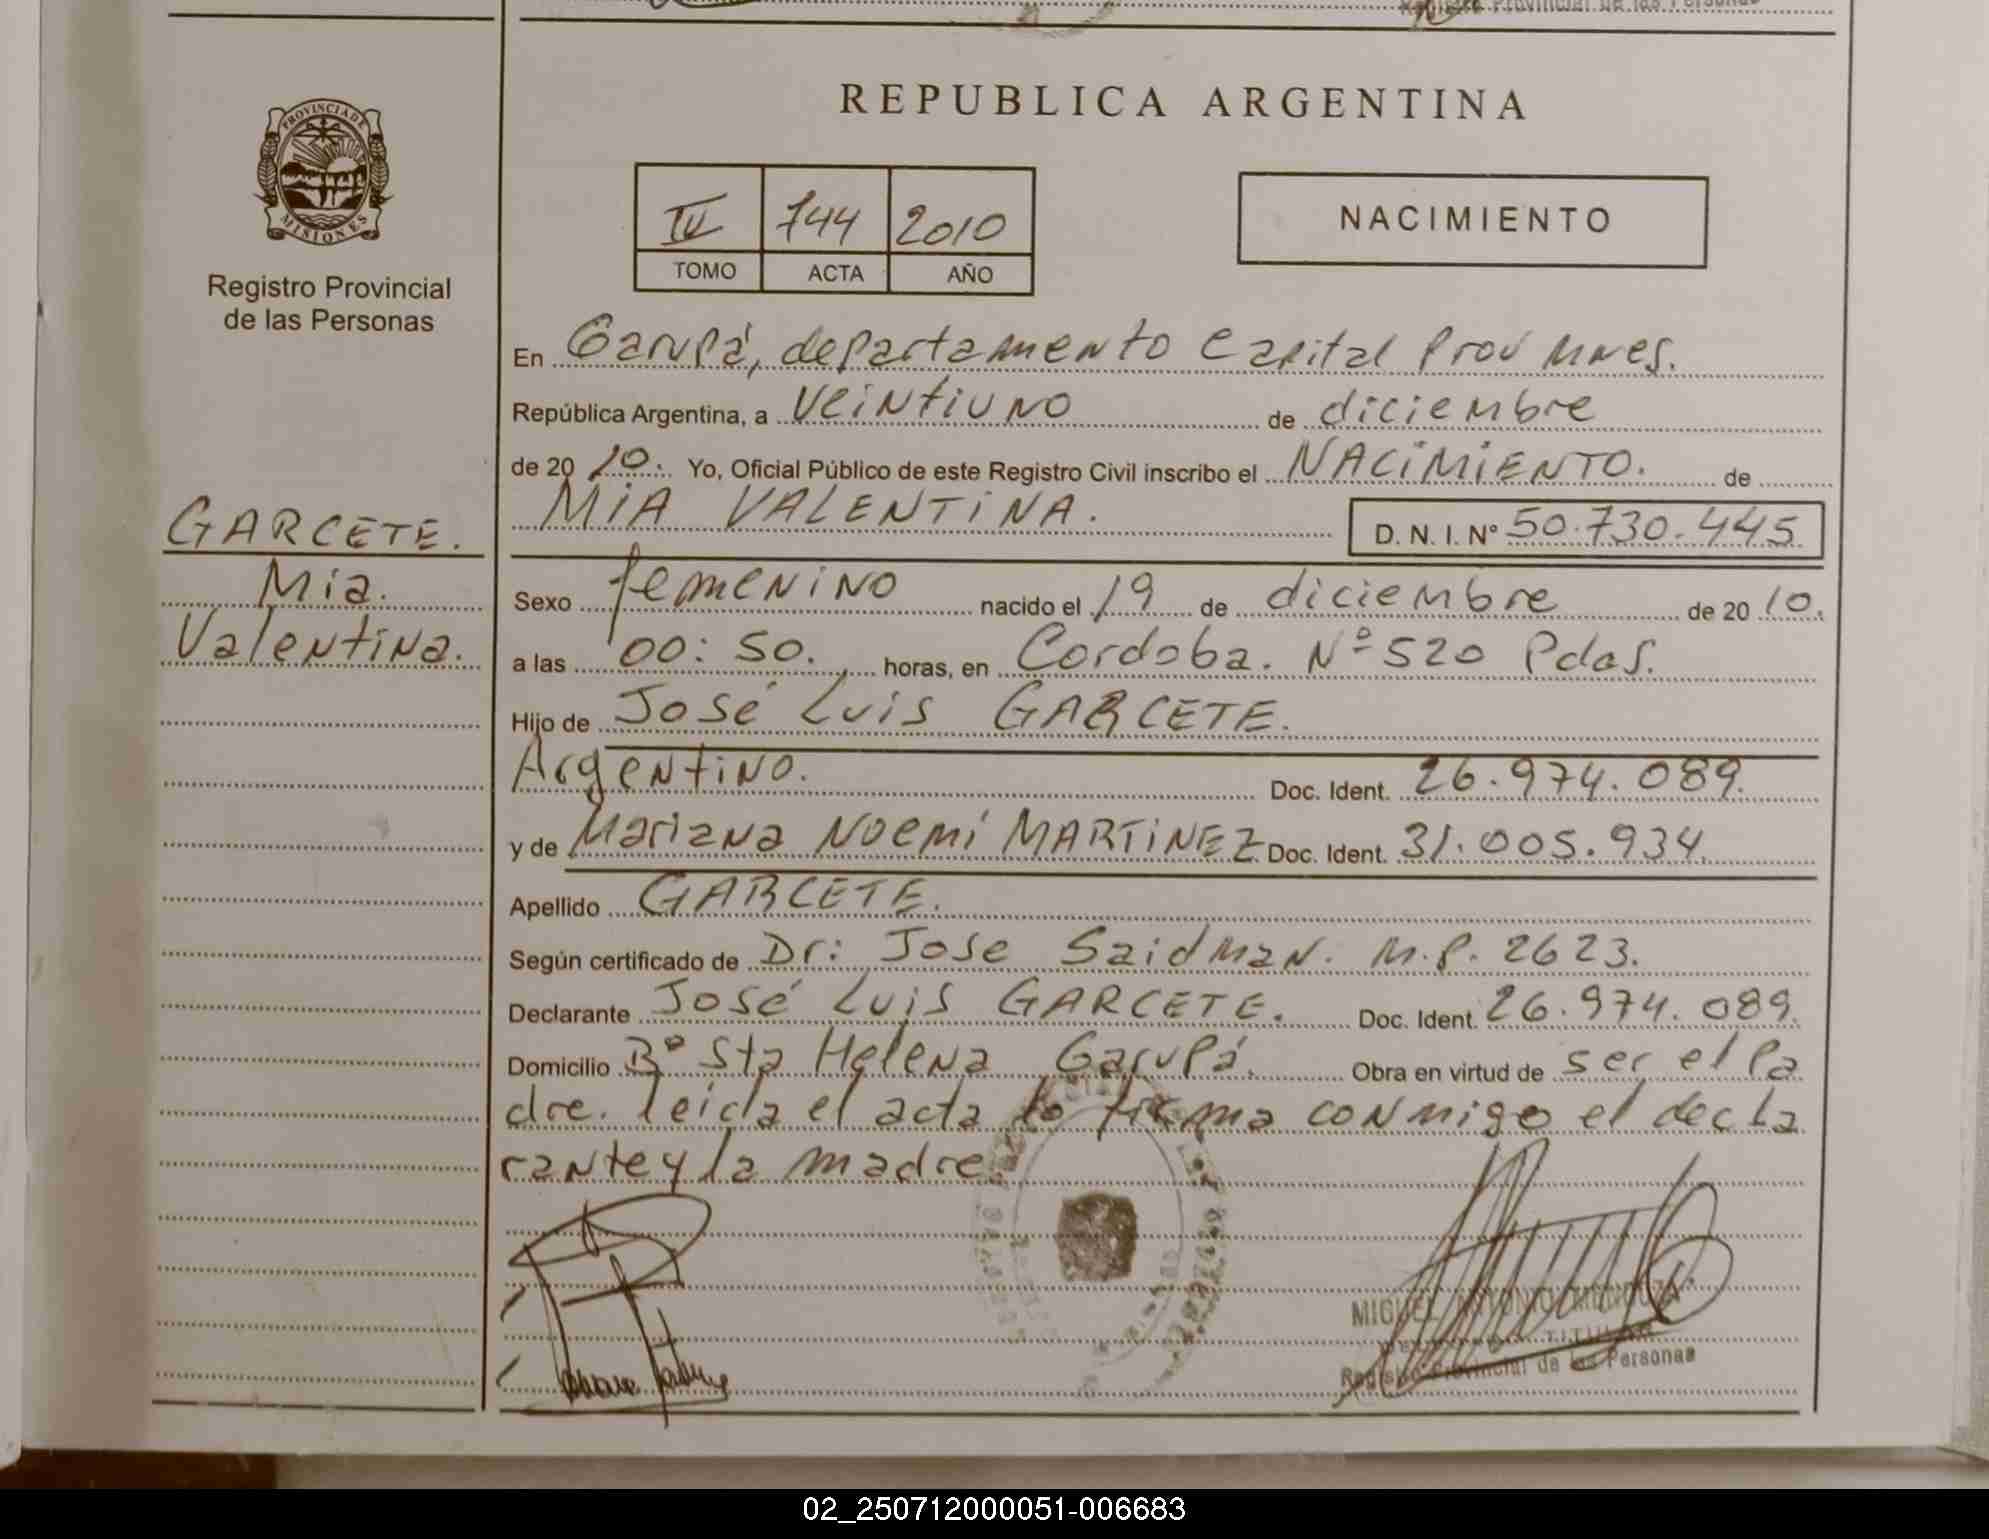 PROVINCIA DE
MISIONES
Registro Provincial
de las Personas
GARCETE.
Mia.
Valentina.
REPUBLICA ARGENTINA
IV 744 2010
TOMO ACTA AÑO
NACIMIENTO
En Garupá, departamento Capital Prov Mnes.
República Argentina, a veintiuno de diciembre
de 20 10. Yo, Oficial Público de este Registro Civil inscribo el NACIMIENTO. de
MIA VALENTINA. D. N. I. Nº 50.730.445
Sexo femenino nacido el 19 de diciembre de 20 10.
a las 00:50. horas, en Cordoba. Nº 520 Pdas.
Hijo de José Luis GARCETE.
Argentino. Doc. Ident. 26.974.089.
y de Mariana Noemí MARTINEZ Doc. Ident. 31.005.934
Apellido GARCETE.
Según certificado de Dr: Jose Saidman. M.P. 2623.
Declarante José Luis GARCETE. Doc. Ident. 26.974.089.
Domicilio Bº Sta Helena Garupá. Obra en virtud de ser el Pa
dre. leída el acta lo firma conmigo el decla
rante y la madre
MIGUEL ANTONIO
TITULAR
Registro Provincial de las Personas
02_250712000051-006683